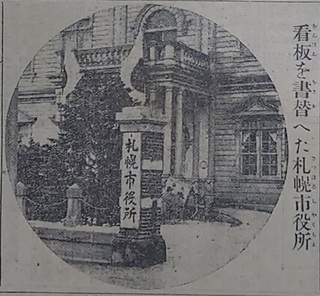 看板を書替へた札幌市役所
札幌市役所